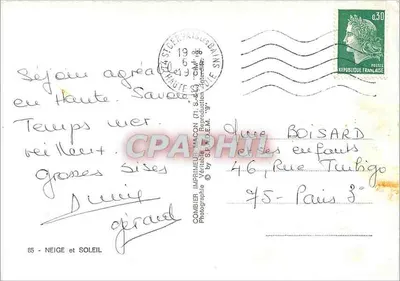 Séjour agréa
en Haute. Savoie
Temps mer.
veilleux.
Grosses Bises
Annie
gérard
85 - NEIGE et SOLEIL
COMBIER IMPRIMEUR MACON
Photographie Véritable
© by
CPAPHIL
19
6
0,30
FRANCE
REPUBLIQUE FRANÇAISE
Mme BOISARD
et ses enfants
46, Rue Turbigo
75 - Paris 3°